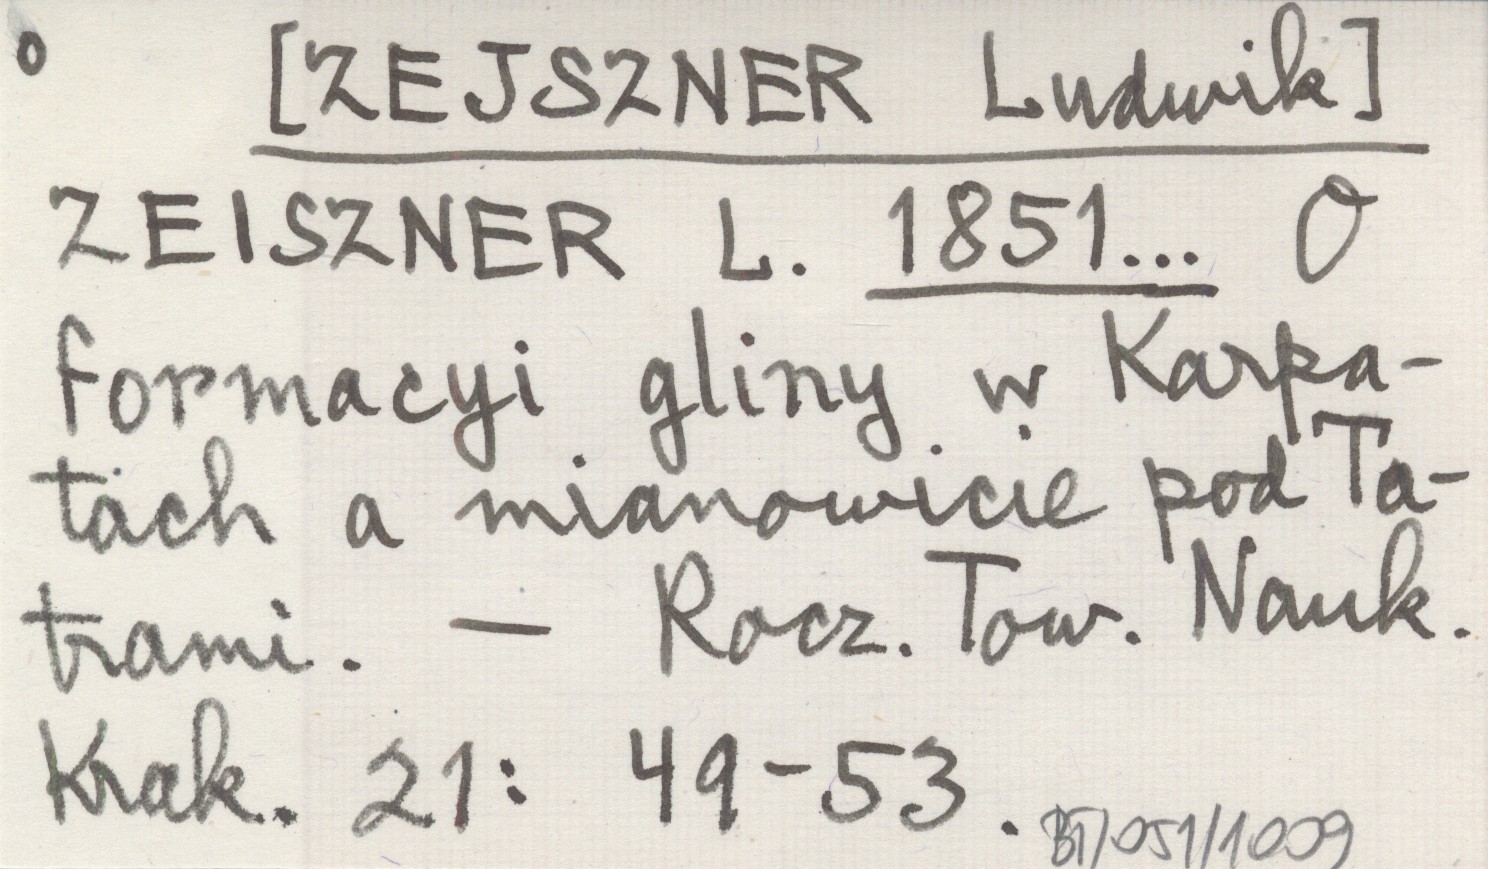 o [ZEJSZNER Ludwik]
ZEISZNER L. 1851... O
formacyi gliny w Karpa-
tach a mianowicie pod Ta-
trami. — Rocz. Tow. Nauk.
Krak. 21: 49-53.
BT/051/1009